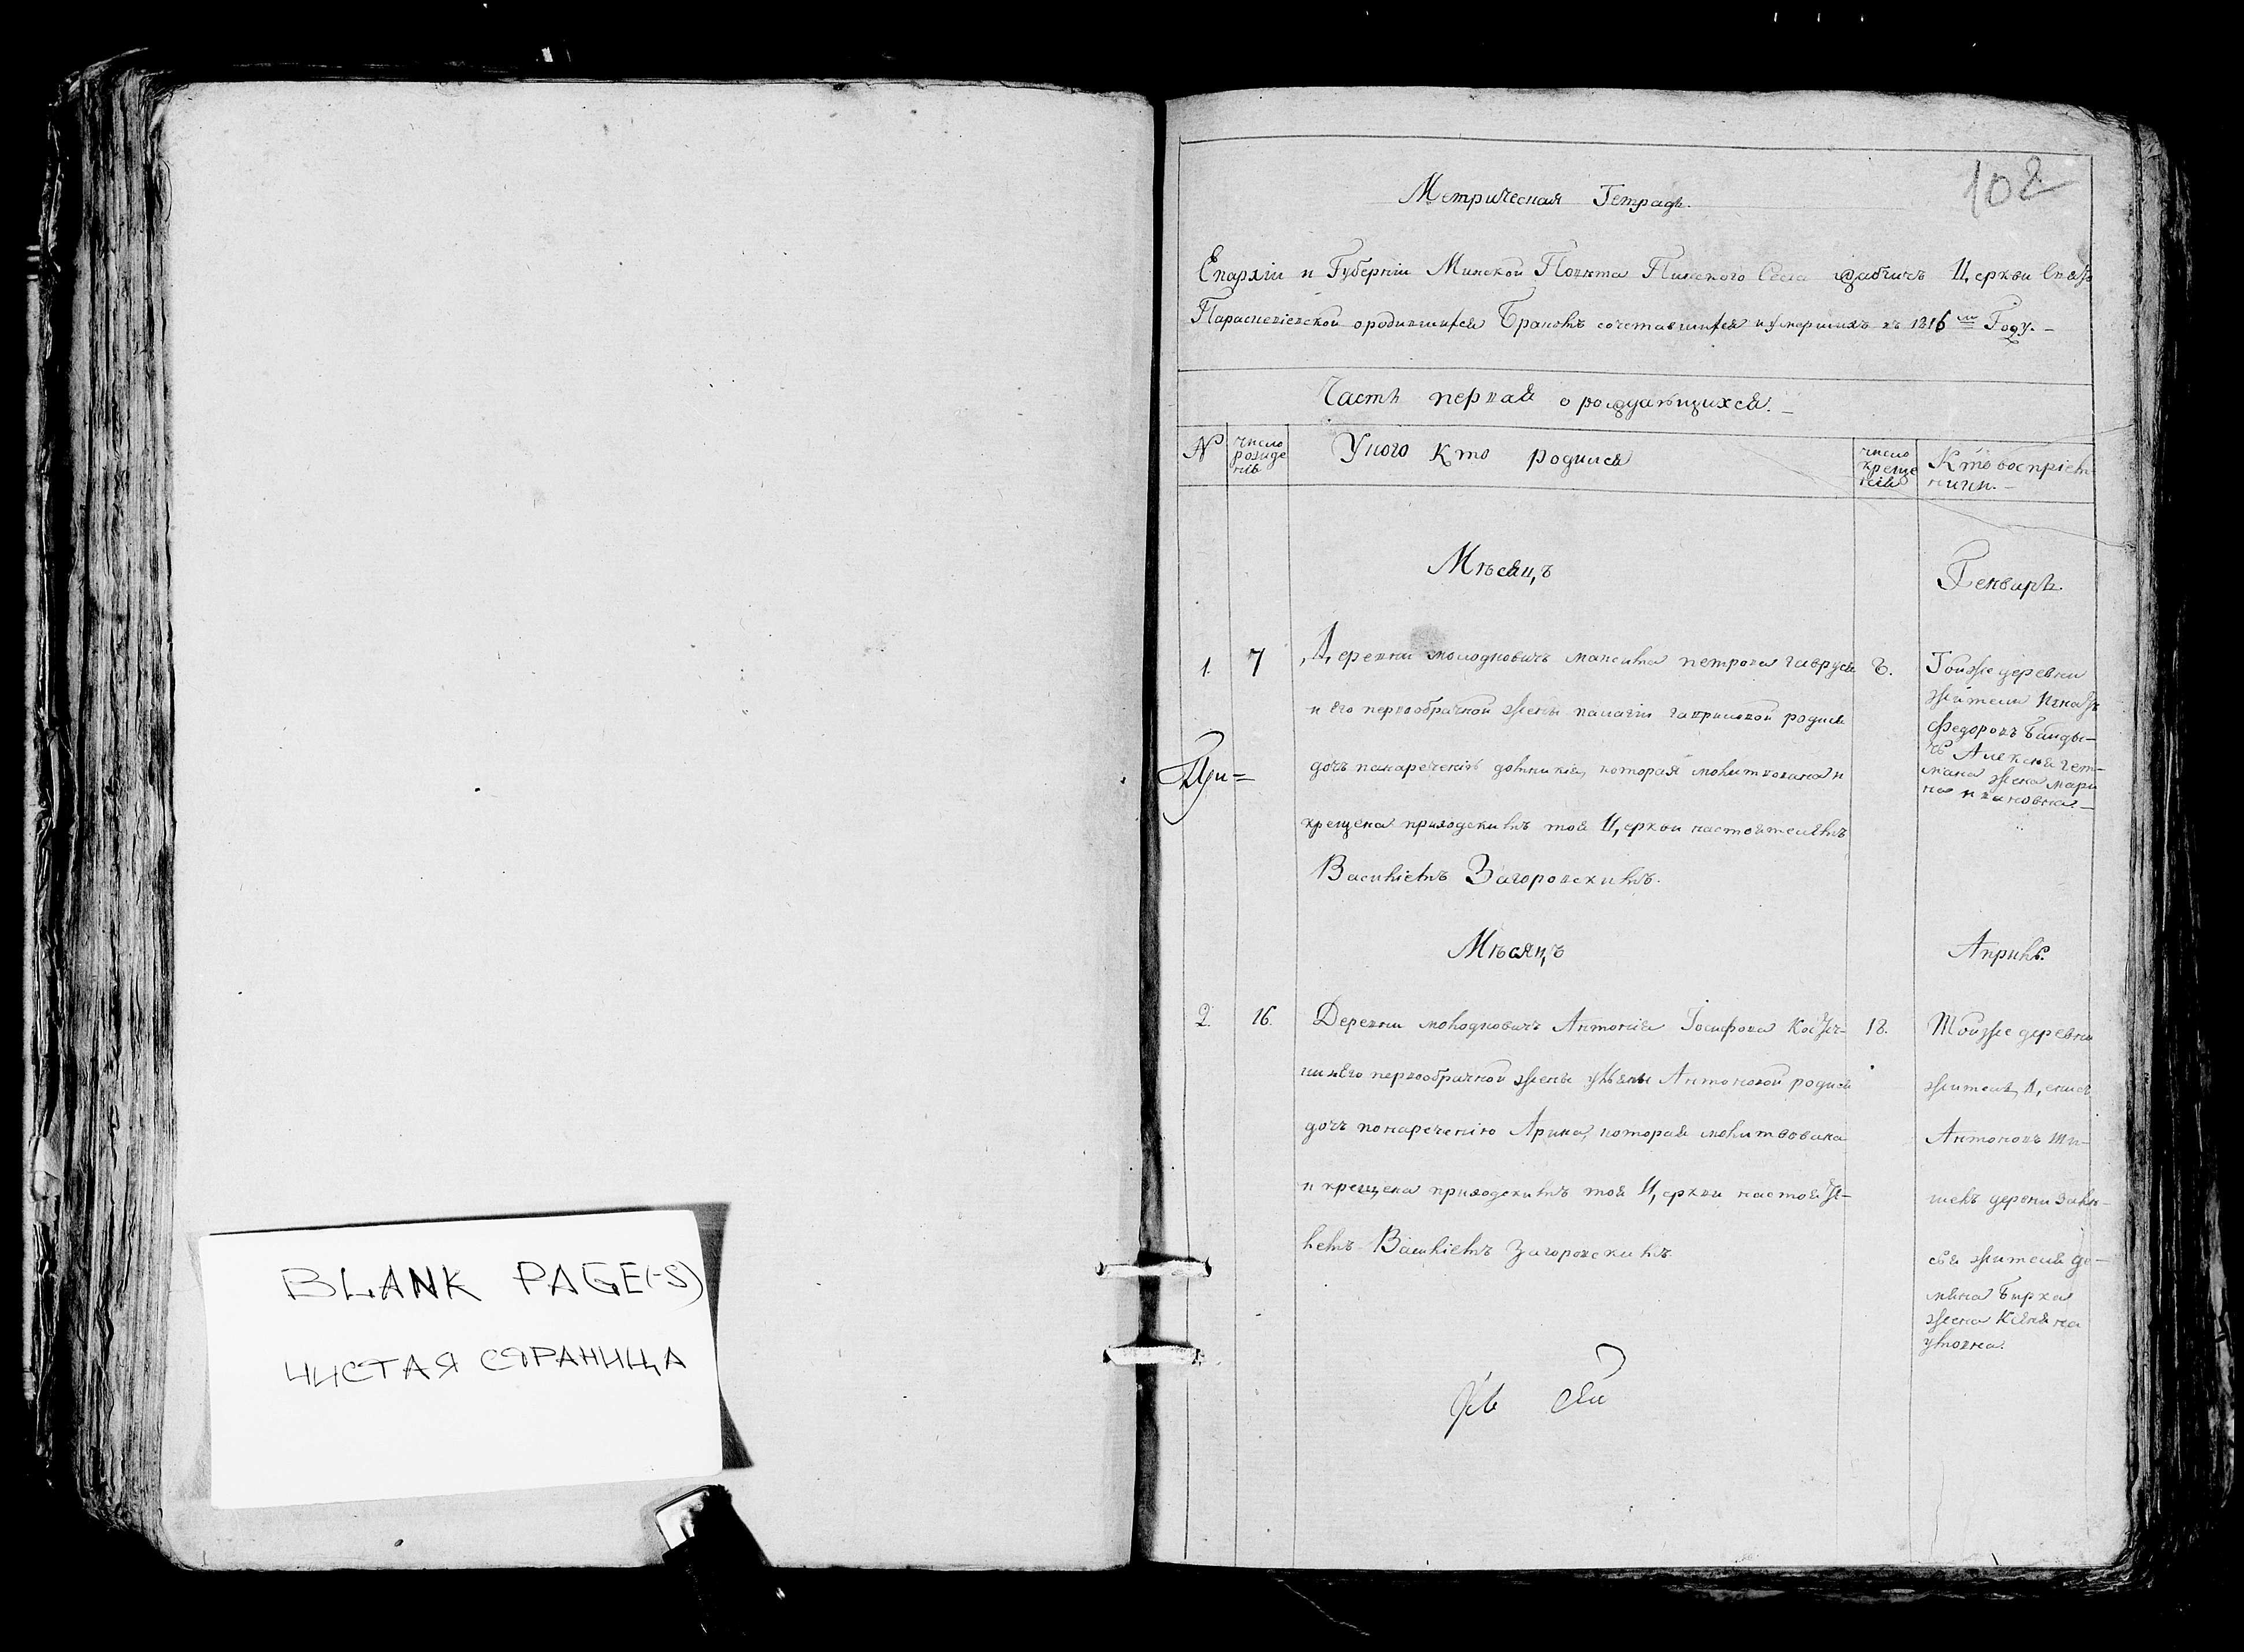 BLANK PAGE(-S)
ЧИСТАЯ СТРАНИЦА
102
Метрическая Тетрадь.
Епархіи и Губерніи Минской Повѣта Пинского Села Жабчичъ Церкви
Параскевіевской о родившихся Бракомъ сочетавшихся и умершихъ въ 1816 м Году.
Часть первая о рождающихся.
№
число рожденія
У кого Кто родился
число крещенія
Кто воспріемники.
Мѣсяцъ
Генварь
1.
7
Деревни молодковичъ максима петрова гавруся
и его первообрачной жены палагіи гавриловой родися
дочь нареченіемъ домникія, которая молитвована и
крещена приходскимъ тоя Церкви настоятелемъ
Василіемъ Загоровскимъ.
8.
Тойже деревни
жители Игнатъ
Федоровъ
Алексея гет-
мана жена мари
на ивановна.
При=
Мѣсяцъ
Апрѣль
2.
16.
Деревни молодковичъ Антонія Іосифова
и его первообрачной жены улляны Антоновой родися
дочь по нареченію Арина, которая молитвована
и крещена приходскимъ тоя Церкви настояте-
лемъ Василіемъ Загоровскимъ
18.
Тойже деревни
житель Денисъ
Антоновъ
деревни
жителя де-
мяна
жена